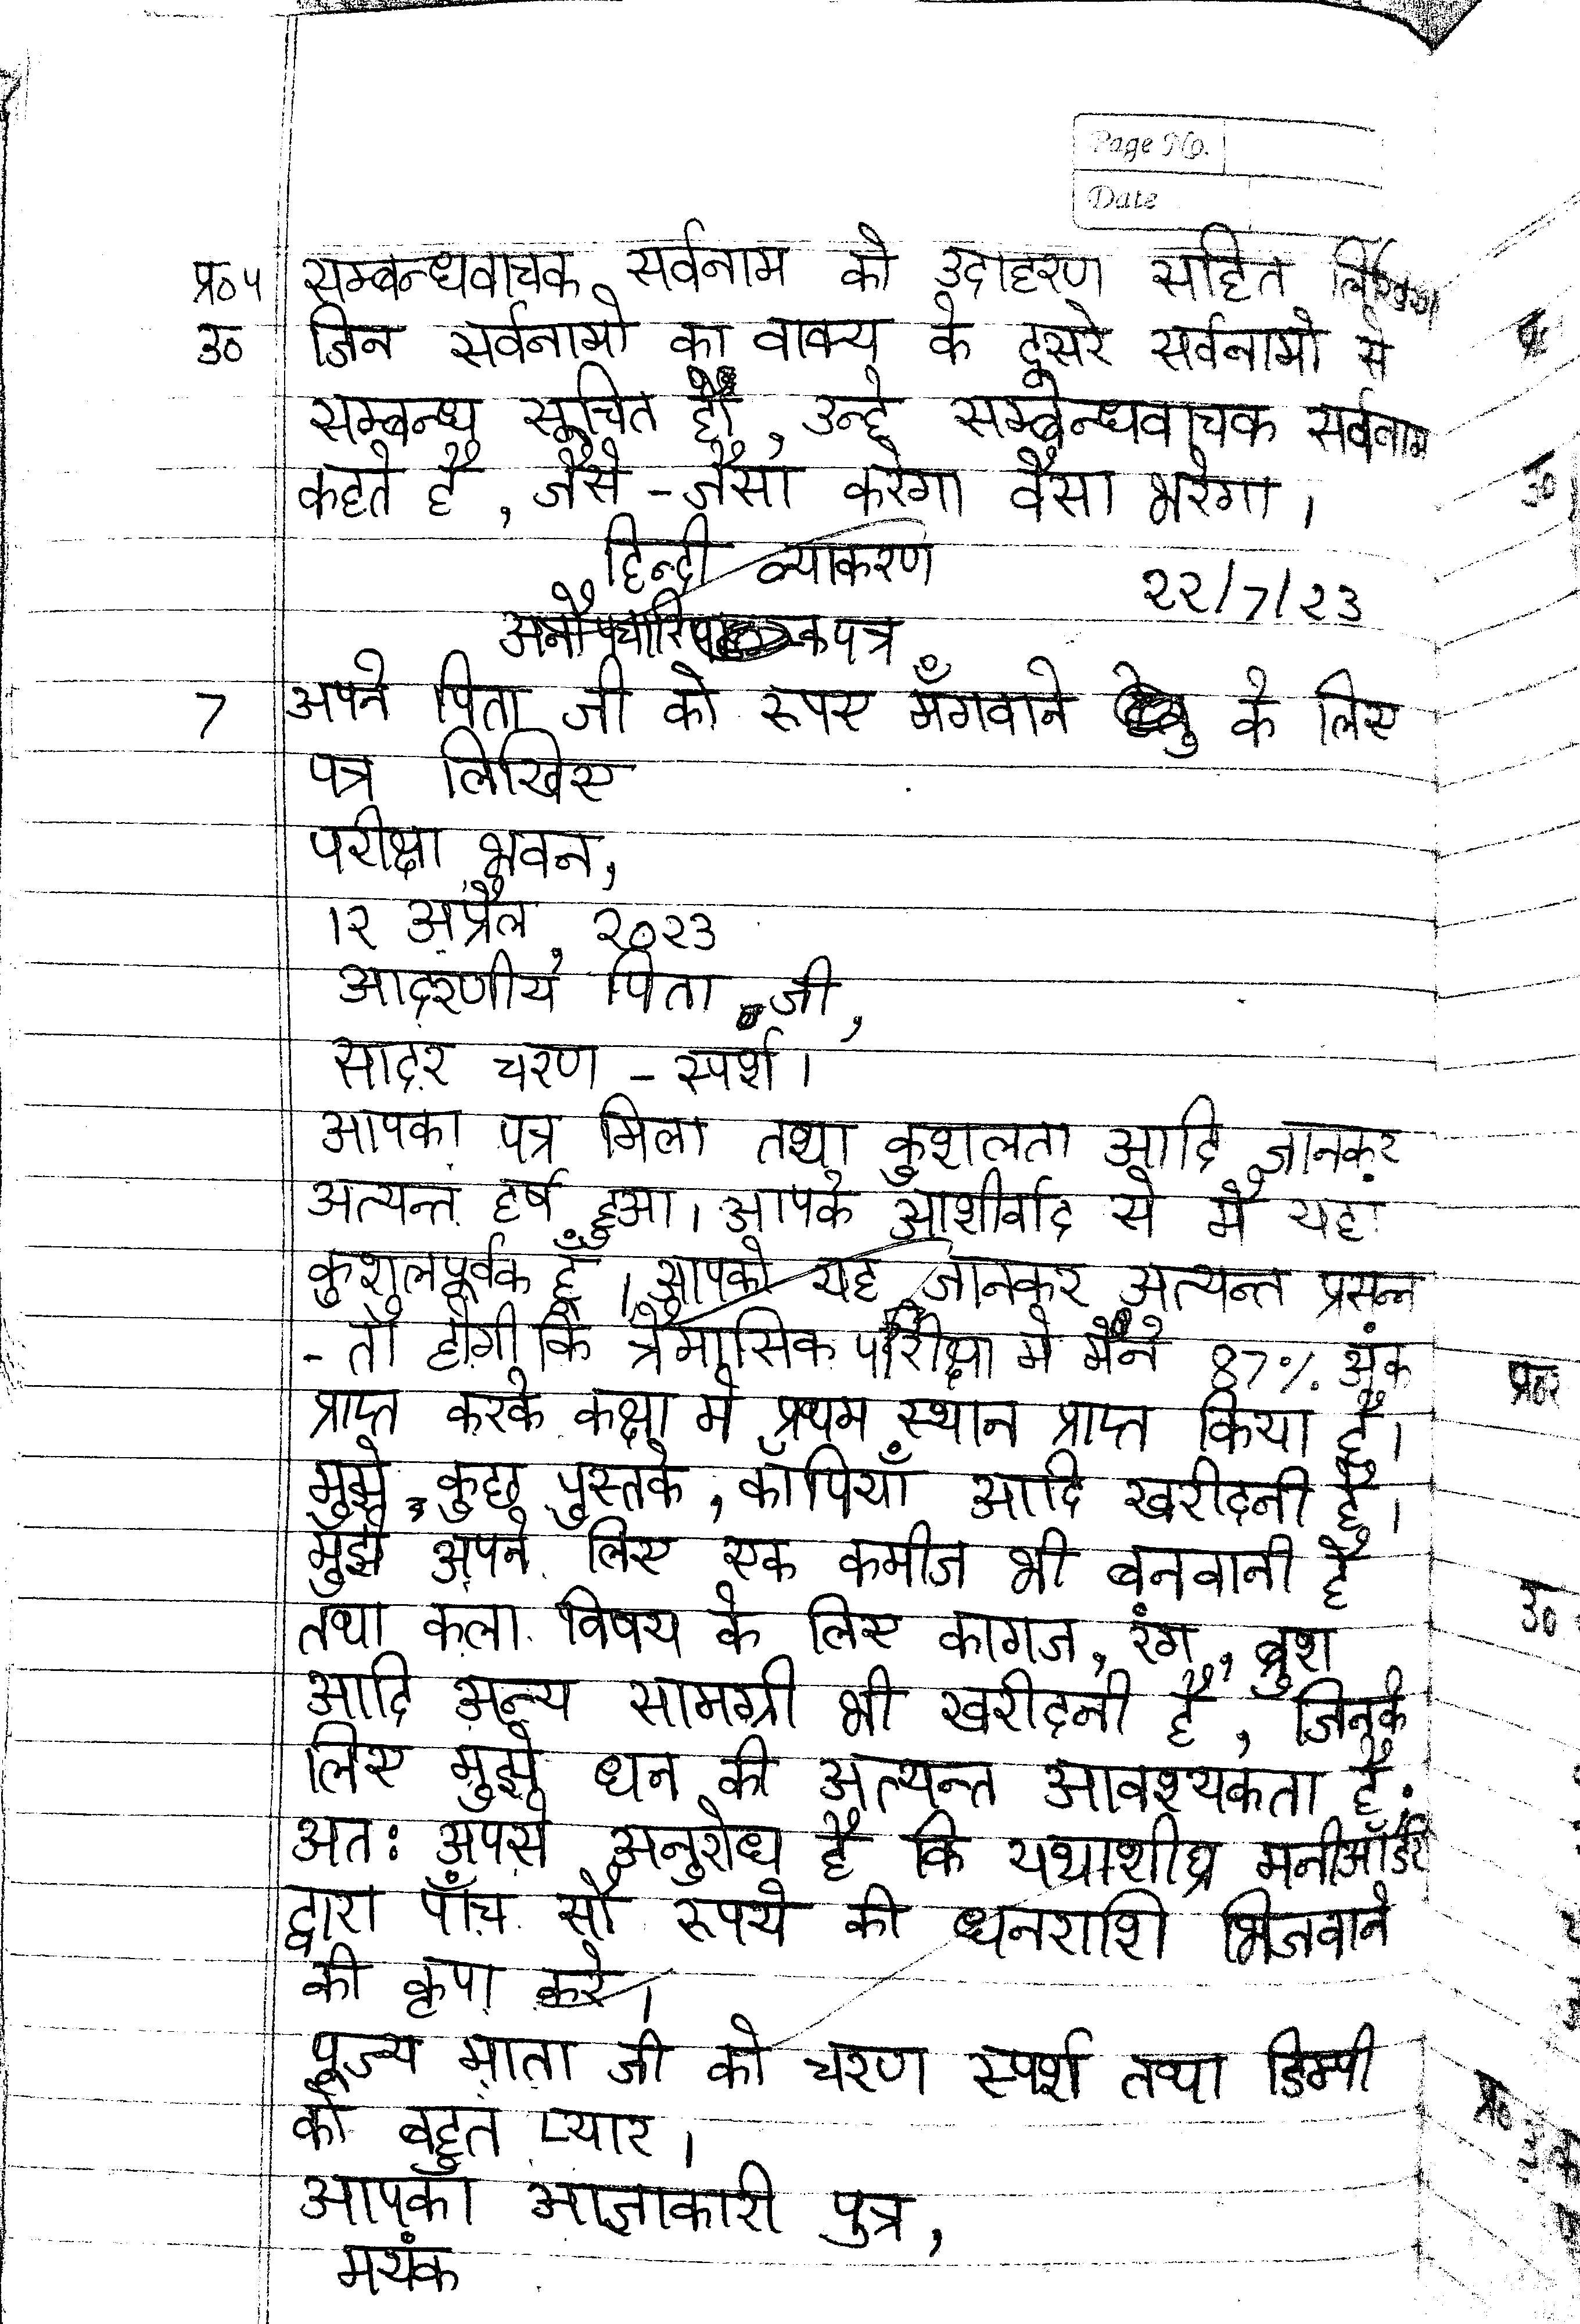 Page No.
Date
प्र०५ सम्बन्धवाचक सर्वनाम को उदाहरण सहित लिखिए
उ० जिन सर्वनामो का वाक्य के दूसरे सर्वनामो से
सम्बन्ध सूचित हो, उन्हे सम्बन्धवाचक सर्वनाम
कहते है, जैसे - जैसा करेगा वैसा भरेगा।
हिन्दी व्याकरण
२२/७/२३
अनौपचारिक पत्र
7 अपने पिता जी को रूपए मँगवाने के लिए
पत्र लिखिए
परीक्षा भवन,
१२ अप्रैल, २०२३
आदरणीय पिता जी,
सादर चरण - स्पर्श।
आपका पत्र मिला तथा कुशलता आदि जानकर
अत्यन्त हर्ष हुआ। आपके आशीर्वाद से मै यहा
कुशलपूर्वक हूँ। आपको यह जानकर अत्यन्त प्रसन्न
- ता होगी कि त्रैमासिक परीक्षा मे मैने 87% अंक
प्राप्त करके कक्षा मे प्रथम स्थान प्राप्त किया है।
मुझे कुछ पुस्तके, कॉपियाँ आदि खरीदनी है।
मुझे अपने लिए एक कमीज भी बनवानी है
तथा कला विषय के लिए कागज, रंग, ब्रुश
आदि अन्य सामग्री भी खरीदनी है, जिनके
लिए मुझे धन की अत्यन्त आवश्यकता है।
अतः अपसे अनुरोध है कि यथाशीघ्र मनीऑर्डर
द्वारा पाँच सौ रूपये की धनराशि भिजवाने
की कृपा करे।
पूज्य माता जी को चरण स्पर्श तथा डिम्पी
को बहुत प्यार।
आपका आज्ञाकारी पुत्र,
मयंक